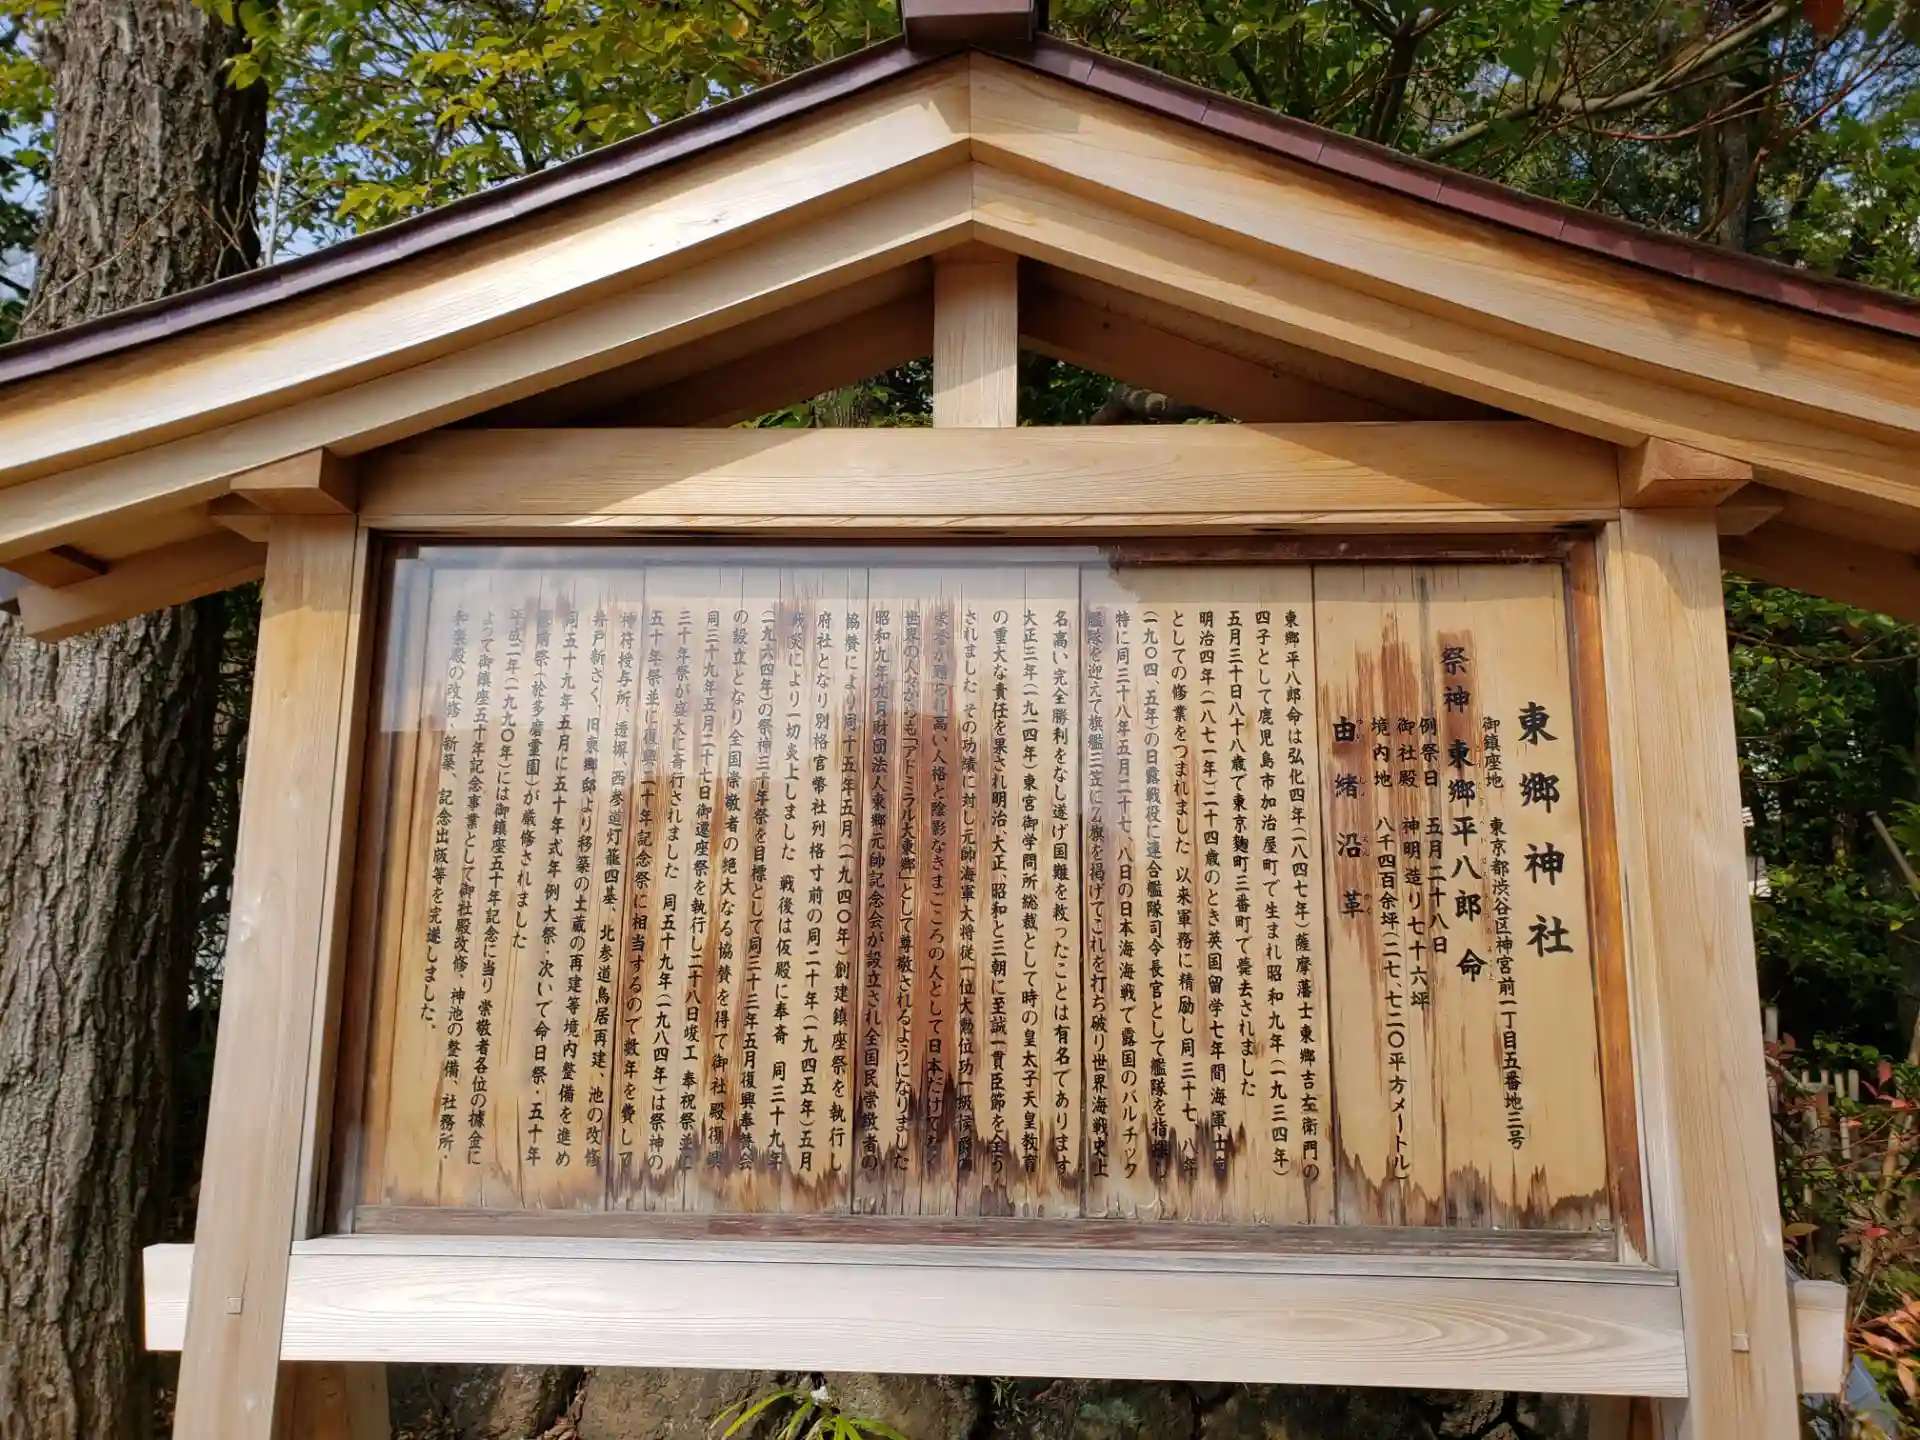 東郷神社
御鎮座地 東京都渋谷区神宮前一丁目五番地三号
祭神 東郷平八郎命
例祭日 五月二十八日
御社殿 神明造り七十六坪
境内地 八千四百余坪(二七、七二〇平方メートル)
由緒沿革
東郷平八郎命は弘化四年(一八四七年)薩摩藩士東郷吉左衛門の
四子として鹿児島市加治屋町で生まれ昭和九年(一九三四年)
五月三十日八十八歳で東京麹町三番町で薨去されました
明治四年(一八七一年)二十四歳のとき英国留学七年間海軍士官
としての修業をつまれました 以来軍務に精励し同三十七、八年
(一九〇四、五年)の日露戦役に連合艦隊司令長官として艦隊を指揮し
特に同三十八年五月二十七、八日の日本海海戦で露国のバルチック
艦隊を迎えて旗艦三笠にZ旗を掲げてこれを打ち破り世界海戦史上
名高い完全勝利をなし遂げ国難を救ったことは有名であります
大正三年(一九一四年)東宮御学問所総裁として時の皇太子天皇教育
の重大な責任を果され明治、大正、昭和と三朝に至誠一貫臣節を全う
されました その功績に対し元帥海軍大将従一位大勲位功一級侯爵の
栄誉が贈られ高い人格と陰影なきまごころの人として日本だけでなく
世界の人々からも「アドミラル大東郷」として尊敬されるようになりました
昭和九年九月財団法人東郷元帥記念会が設立され全国民崇敬者の
協賛により同十五年五月(一九四〇年)創建鎮座祭を執行し
府社となり別格官幣社列格寸前の同二十年(一九四五年)五月
戦災により一切炎上しました 戦後は仮殿に奉斎 同三十九年
(一九六四年)の祭神三十年祭を目標として同三十三年五月復興奉賛会
の設立となり全国崇敬者の絶大なる協賛を得て御社殿復興
同三十九年五月二十七日御遷座祭を執行し二十八日竣工奉祝祭並に
三十年祭が盛大に斎行されました 同五十九年(一九八四年)は祭神の
五十年祭並に復興二十年記念祭に相当するので数年を費して
神符授与所、透塀、西参道灯籠四基、北参道鳥居再建、池の改修
井戸新さく、旧東郷邸より移築の土蔵の再建等境内整備を進め
同五十九年五月に五十年式年例大祭・次いで命日祭・五十年
墓前祭(於多磨霊園)が厳修されました
平成二年(一九九〇年)には御鎮座五十年記念に当り崇敬者各位の據金に
よって御鎮座五十年記念事業として御社殿改修、神池の整備、社務所・
和楽殿の改修・新築、記念出版等を完遂しました。